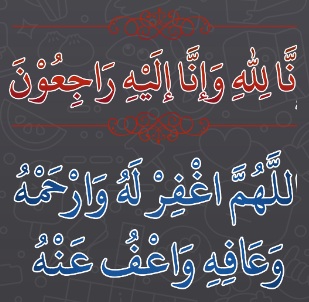 نَّا لِلّٰهِ وَإِنَّا إِلَيْهِ رَاجِعُوْنَ
اللَّهُمَّ اغْفِرْ لَهُ وَارْحَمْهُ
وَعَافِهِ وَاعْفُ عَنْهُ